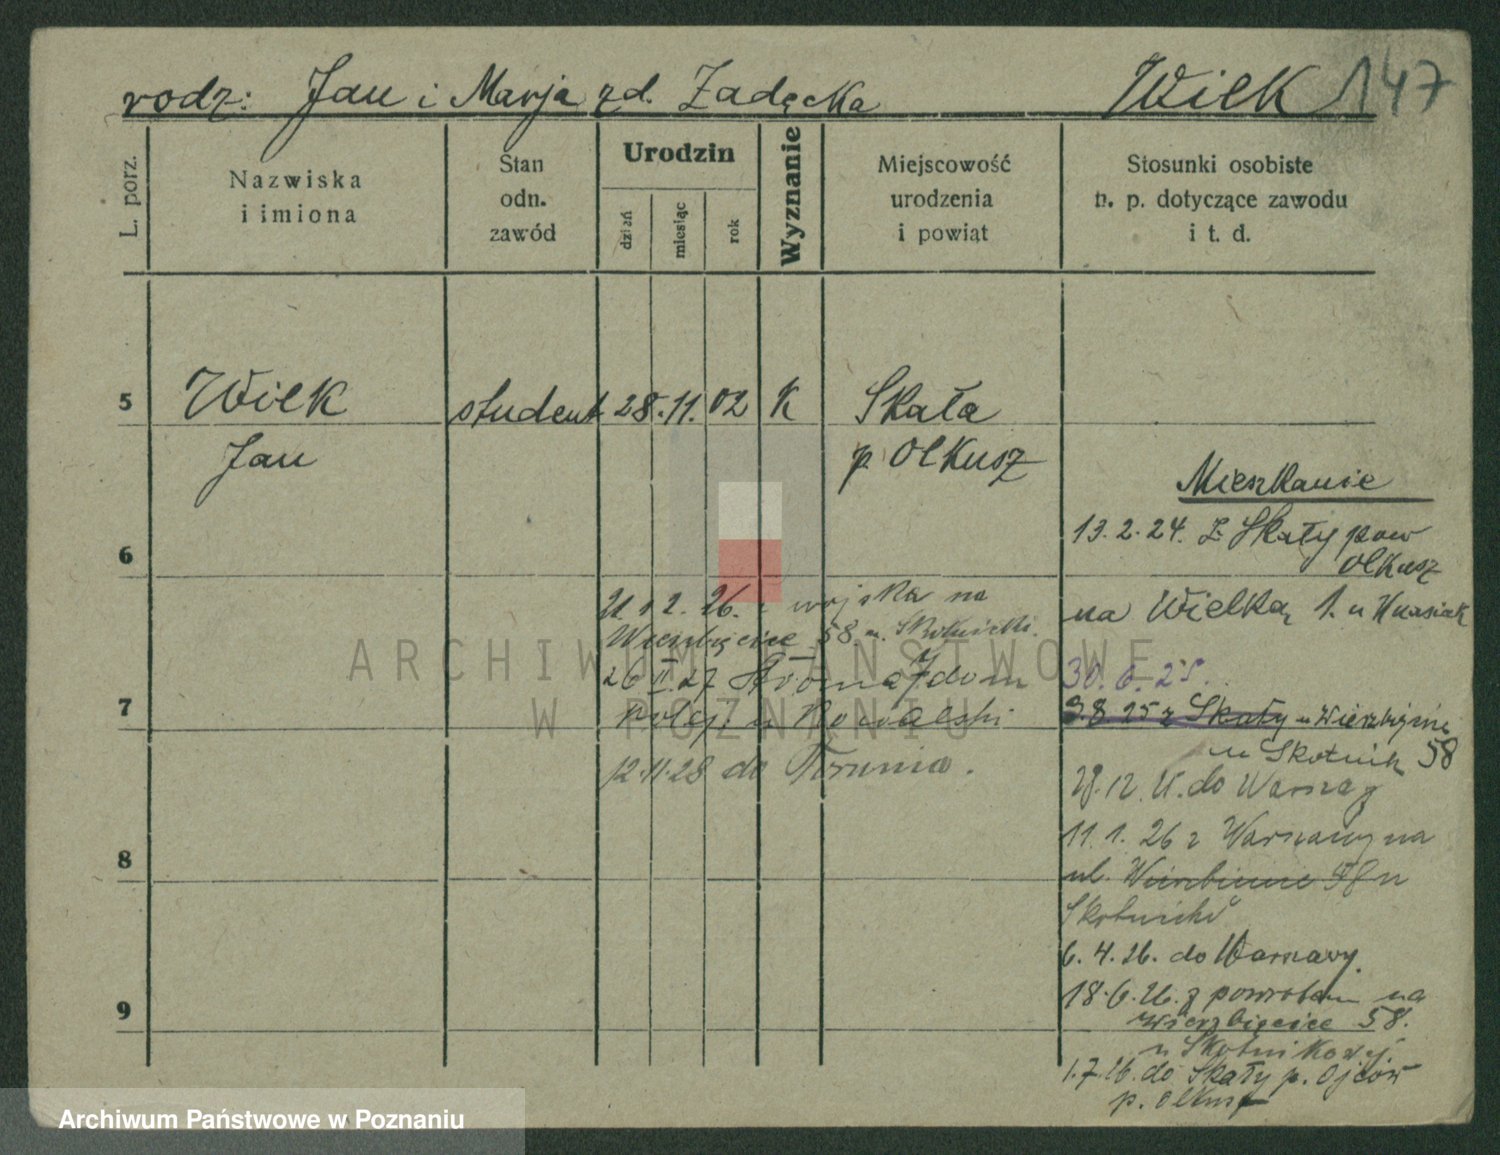 rodz: Jan i Marja zd. Zadęcka Wilk 147
L. porz.
Nazwiska
i imiona
Stan
odn.
zawód
Urodzin
dzień
miesiąc
rok
Wyznanie
Miejscowość
urodzenia
i powiat
Stosunki osobiste
n. p. dotyczące zawodu
i t. d.
5 Wilk student 28. 11. 02 K Skała
Jan p Olkusz
Mieszkanie
13. 2. 24. z Skały pow
Olkusz
6
na Wielką 1. u
12. 26. z wojska na
Wierzbięcice 58 u. Skotnicki.
30. 6. 25.
26 II. 27 dom
7
kolej. u Kowalski
3. 8 25 z Skały
u Skotnick 58
12. 11. 28 do Torunia.
28. 12. do
11. 1. 26 z Warszawy na
8
ul. 58 u
Skotnicki
6. 4. 26. do Warszawy.
18. 6. 26. z powrotem na
9
Wierzbięcice 58.
u Skotnikowej.
1. 7. 26. do Skały p. Ojców
p. Olkusz
ARCHIWUM PAŃSTWOWE
W POZNANIU
Archiwum Państwowe w Poznaniu